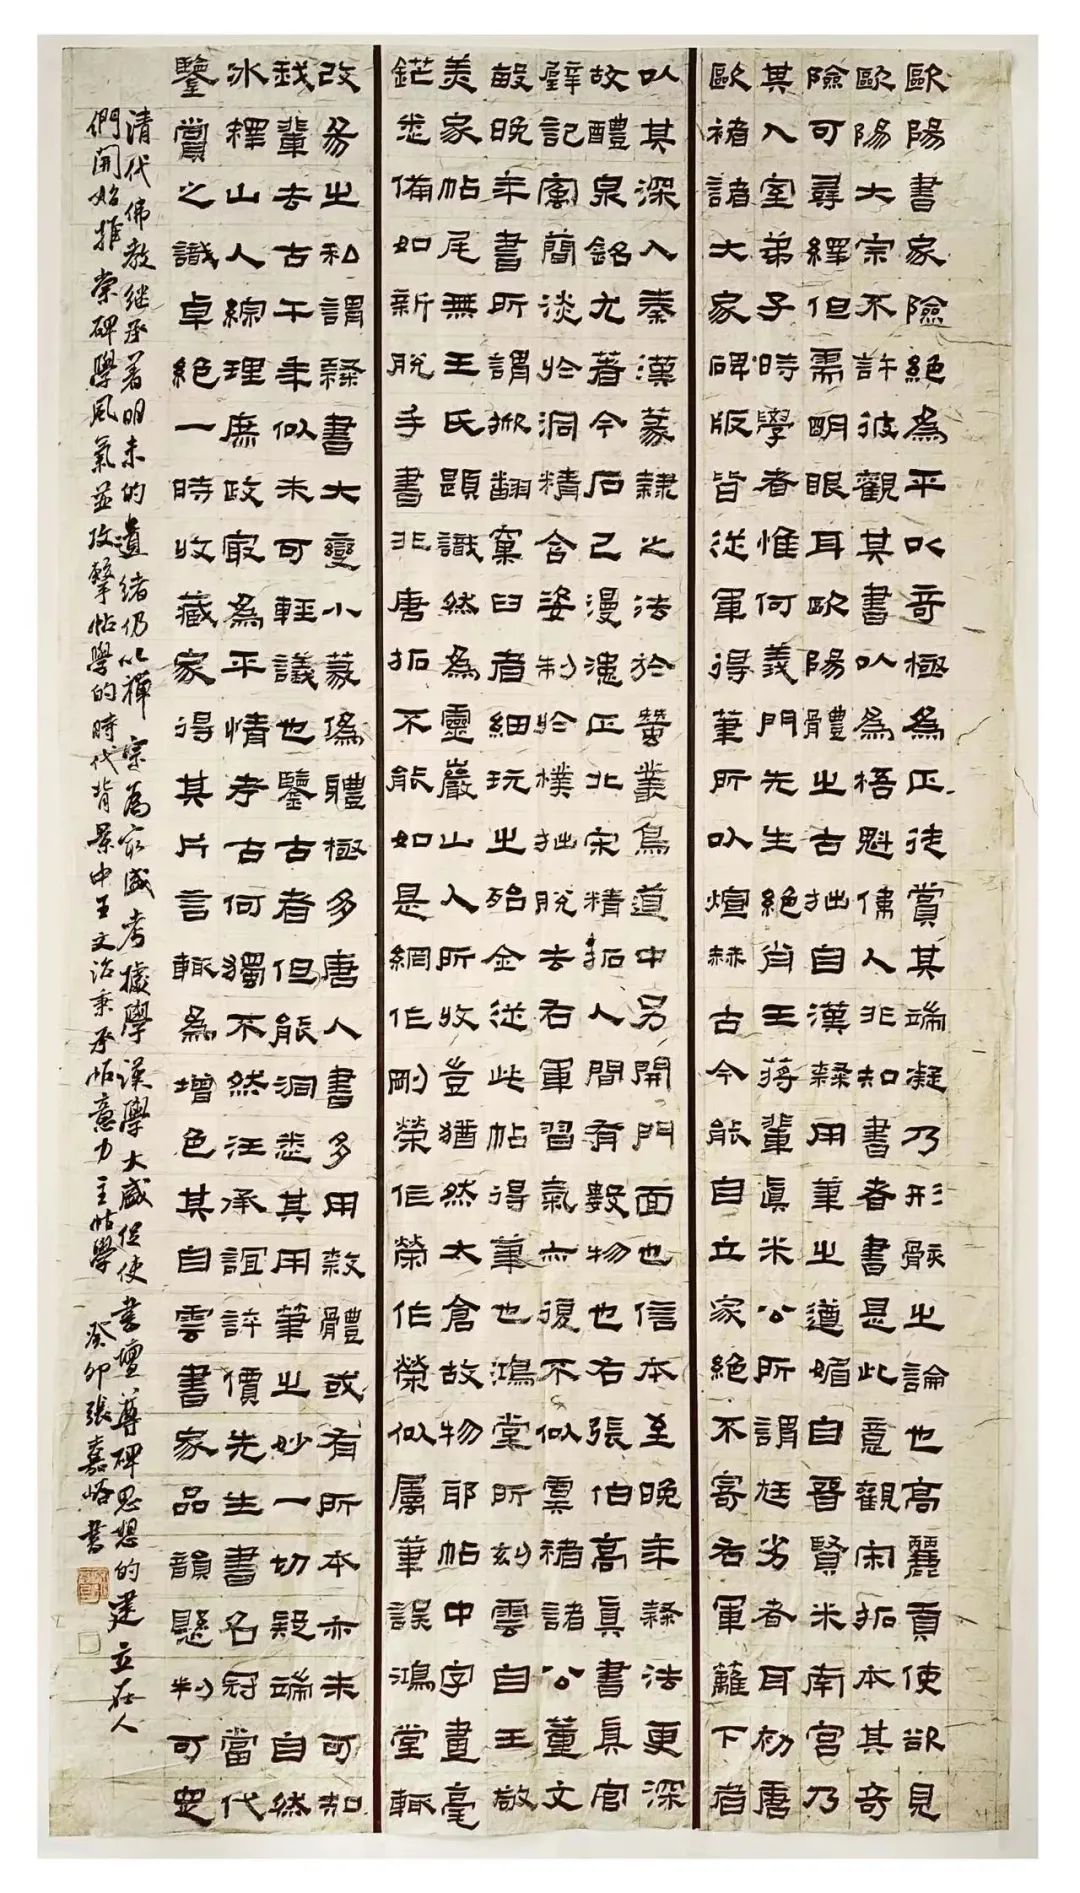 歐陽書家險絕為平以奇極為正徒賞其端凝乃形骸之論也高麗貢使欲見
歐陽大宗不許彼觀其書以為梧魁儔人非知書者書是此意觀宋拓本其奇
險可尋繹但需明眼耳歐陽體之古拙自漢隸用筆之遒媚自晉賢米南宮乃
其入室弟子時學者惟何義門先生絕肖王蔣輩真米公所謂尪劣者耳初唐
歐褚諸大家碑版皆從軍得筆所以煊赫古今能自立家絕不寄右軍籬下者
以其深入秦漢篆隸之法於蠶叢鳥道中另開門面也信本至晚年隸法更深
故醴泉銘尤著今石已漫漶正北宋精拓人間有數物也右張伯高真書真官
壁記寓簡淡於洞精含姿制於樸拙脫去右軍習氣亦復不似虞褚諸公董文
敏晚年書所謂掀翻窠臼者細玩之殆金從此帖得筆也鴻堂所刻雲自王敬
美家帖尾無王氏題識然為靈巖山人所收豈猶然太倉故物耶帖中字畫毫
鋩悉備如新脫手書非唐拓不能如是網作剛榮作榮作榮似屬筆誤鴻堂輒
改易之私謂隸書大變小篆偽體極多唐人書多用殺體或有所本亦未可知
我輩去古千年似未可輕議也鑒古者但能洞悉其用筆之妙一切疑端自然
冰釋山人綜理庶政最為平情考古何獨不然汪承誼評價先生書名冠當代
鑒賞之識卓絕一時收藏家得其片言輒為增色其自雲書家品韻懸判可思
清代佛教继承着明末的遺緒仍以禪宗為最盛考據學漢學大盛促使書壇尊碑思想的建立在人
們開始推崇碑學風氣並攻擊帖學的時代背景中王文治秉承帖意力主帖學 癸卯張嘉峪書